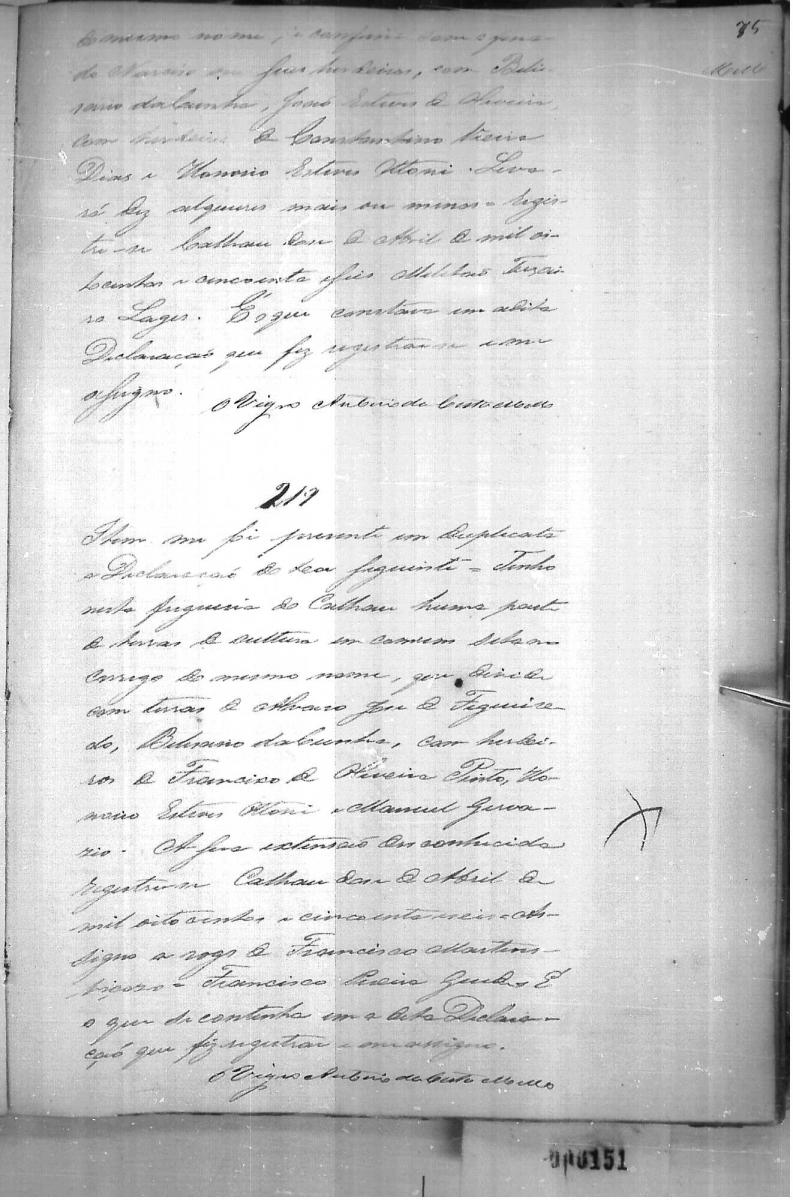 75
Mello
do mesmo nome, e confina com
do Narciso ou seus herdeiros, com Beli-
sario da Cunha, José Esteves de Oliveira,
com herdeiros de Constantino Vieira
Dias e Honorio Esteves Ottoni. Leva-
rá dez alqueires mais ou menos = Regis-
tre-se Calhau doze de Abril de mil oi-
tocentos e cincoenta e seis Militão Teixei-
ra Lages. É o que constava em a dita
Declaração que fiz registrar e me
assigno.
O Vigro Antonio da Costa Mello
217
Item me foi presente em duplicata
a Declaração do teor seguinte = Tenho
nesta freguesia do Calhau huma parte
de terras de cultura em comum sita no
corrego do mesmo nome, que divide
com terras de Alvaro José de Figueire-
do, Belisario da Cunha, com herdei-
ros de Francisco de Oliveira Pinto, Ho-
norio Esteves Ottoni e Manuel Gerva-
zio. A sua extensão desconhecida
registre-se Calhau doze de Abril de
mil oitocentos e cincoenta e seis = As-
signo a rogo de Francisco Martins
= Francisco Pereira Guedes É
o que se continha em a dita Declara-
ção que fiz registrar e me assigno.
O Vigro Antonio da Costa Mello
000151